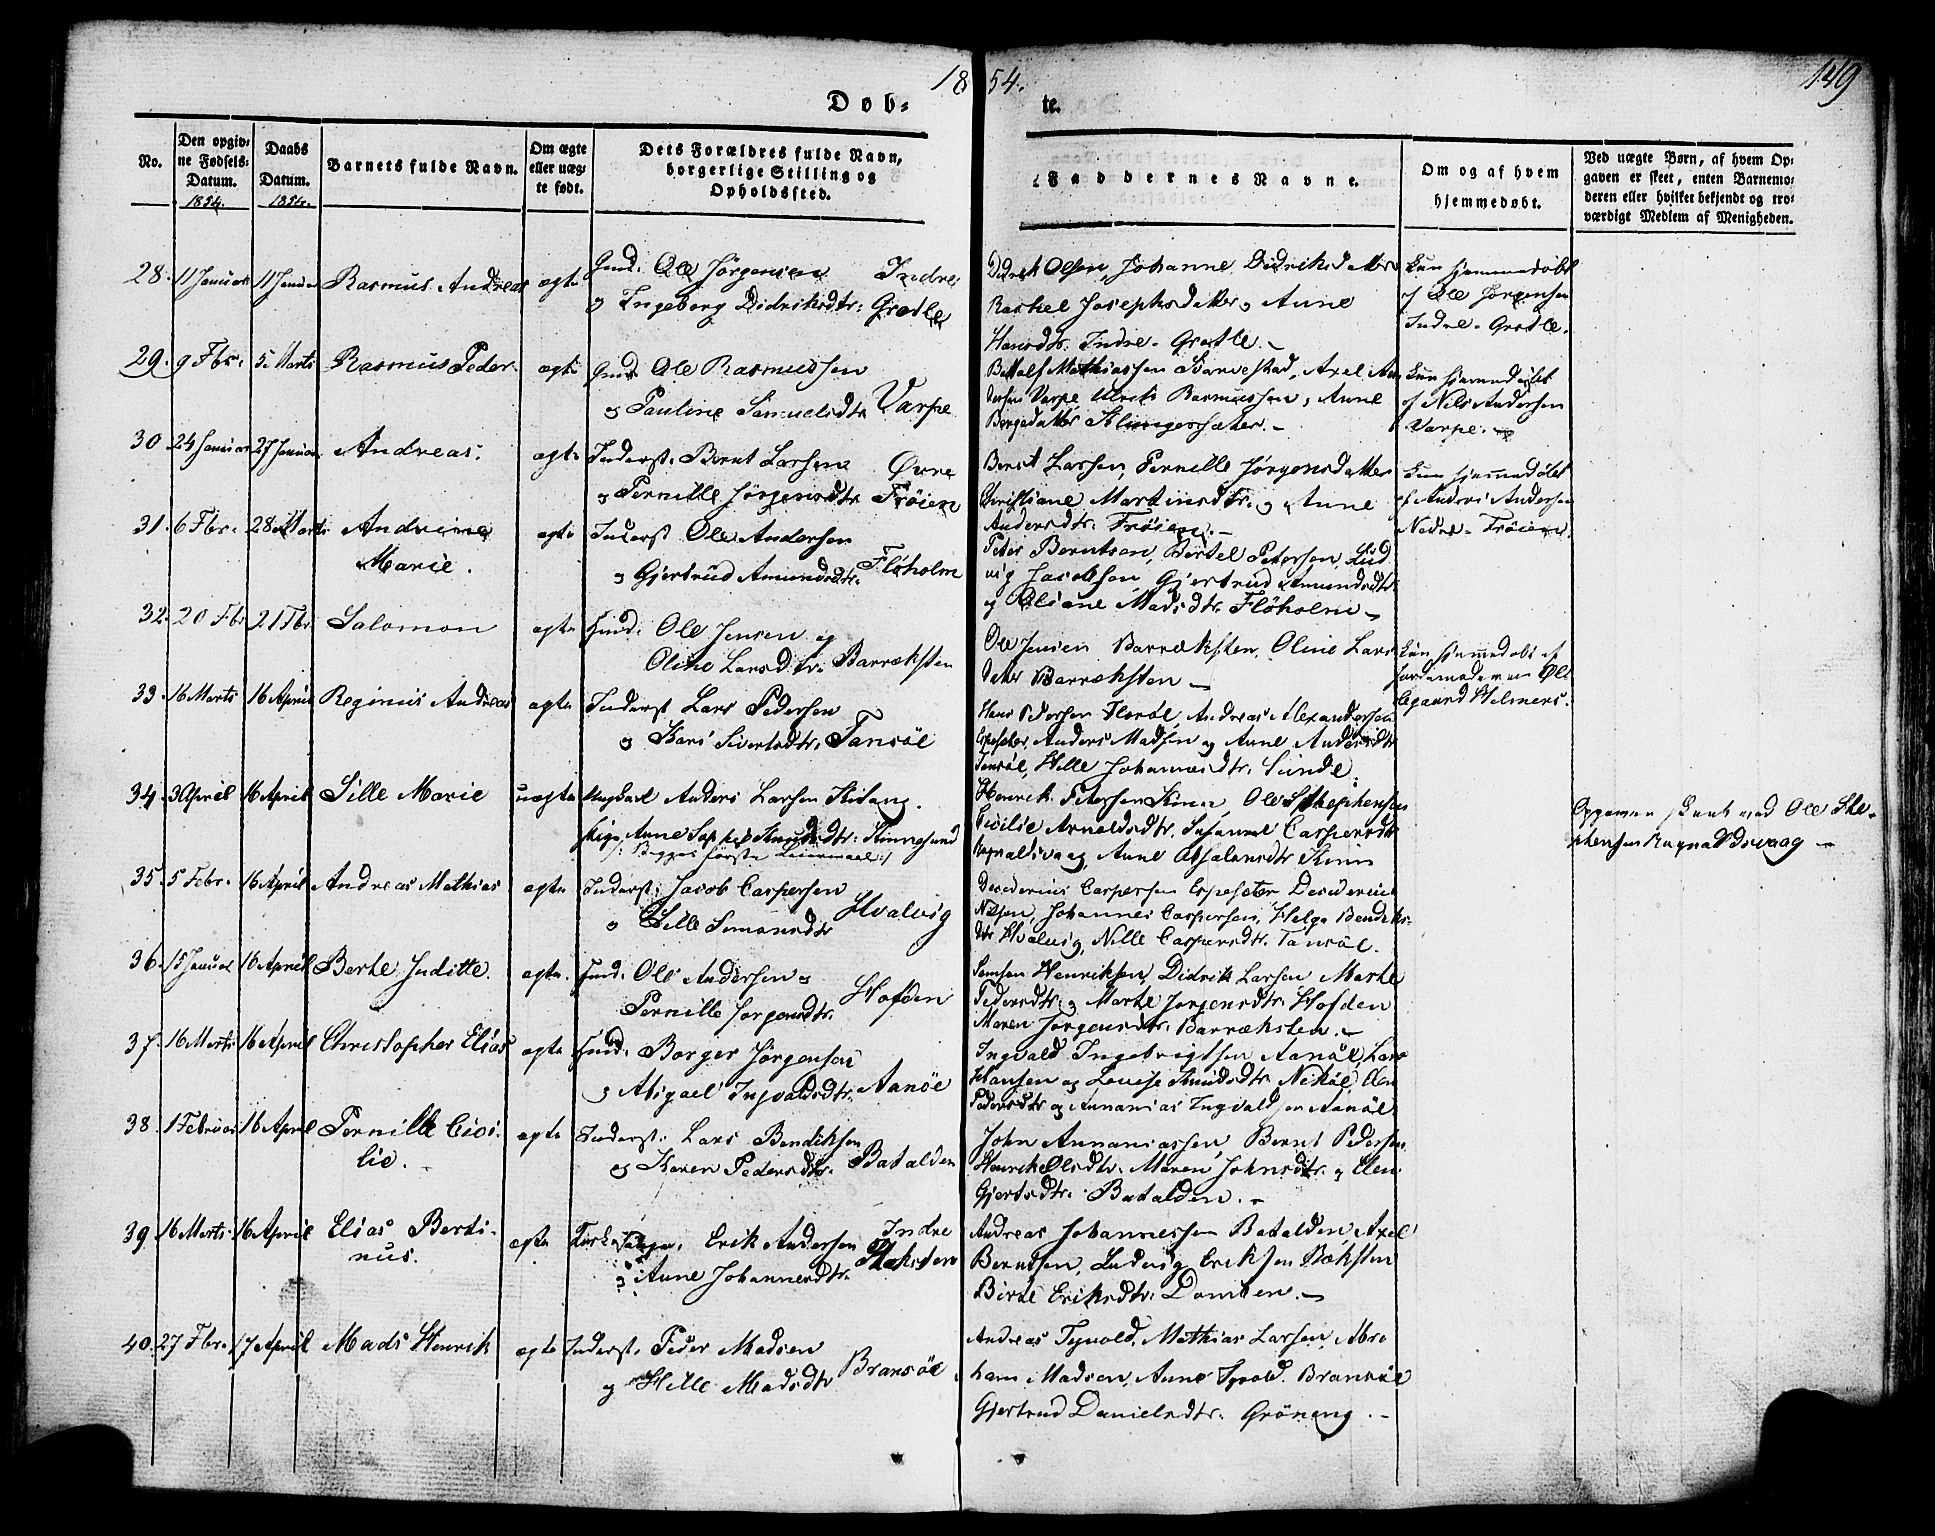 1854.
149
Døb-
te.
No.
Den opgiv-
ne Fødsels-
Datum.
1854.
Daabs
Datum.
1854.
Barnets fulde Navn.
Om ægte
eller uæg-
te født.
Dets Forældres fulde Navn,
borgerlige Stilling og
Opholdssted.
Faddernes Navne.
Om og af hvem
hjemmedøbt.
Ved uægte Børn, af hvem Op-
gaven er skeet, enten Barnemo-
deren eller hvilket bekjendt og tro-
værdigt Medlem af Menigheden.
28. 11 Januar 11 Januar Rasmus Andreas ægte Gmd: Ole Jørgensen Indre
og Ingeborg Didriksdtr: Grotle
Didrik Olsen, Johanne Didriksdatter
Rachel Josephsdatter og Anne
Hansdtr. Indre-Grotle. -
Kun hjemmedøbt
af Ole Jørgensen
Indre-Grotle.
29. 9 Fbr. 5 Marts Rasmus Peder. ægte Gmd. Ole Rasmussen
og Pauline Samuelsdtr. Varpe
Mathiassen Axel An
dersen Varpe Ulrik Rasmussen, Anne
Børgedatter -
Kun hjemmedøbt
af Nils Andersen
Varpe.
30. 24 Januar 27 Januar Andreas. ægte Inderst: Bernt Larsen Øvre
og Pernille Jørgensdtr. Frøien
Bernt Larsen, Pernille Jørgensdatter
Christiane Martinsdtr. og Anne
Andersdtr. Frøien. -
Kun hjemmedøbt
af Anders Andersen
Nedre-Frøien.
31. 6 Fbr. 28 Marts Andrine
Marie.
ægte Inderst Ole Andersen
og Gjertrud Amundsdtr. Fløholm
Peter Berntsen, Bertel Petersen, Lud
vig Jacobsen, Gjertrud Amundsdtr
og Oliane Madsdtr. Fløholm -
32. 20 Fbr 21 Fbr Salomon ægte Gmd: Ole Jensen og
Oline Larsdtr. Barræksten
Ole Jensen Barræksten, Oline Lars
datter Barræksten -
Kun hjemmedøbt af
Jordemoderen Ol
Helmers.
33. 16 Marts 16 April Reginus Andreas ægte Inderst Lars Pedersen
og Kari Sivertsdtr. Tansøe
Hans Pedersen Andreas Alexandersen
Espesæter, Anders Madsen og Anne Andersdtr
Tansøe, Hille Johannesdtr. Sunde.
34. 3 April 16 April Sille Marie uægte Ungkarl Anders Larsen
Pige Anne Sophie Knudsdtr: Kinnesund
/: Begges første Leiermaal :/
Henrik Petersen Kinn, Ole Stephensen
Cicilie Arnoldsdtr, Susanne Caspersdtr
Rognaldsvaag, Anne Absalonsdtr Kinn
Opgaven skeet ved Ole Ste-
phensen Rognaldsvaag -
35. 5 Febr. 16 April Andreas Mathias ægte Inderst: Jacob Caspersen
og Sille Simonsdtr Hvalvig
Desiderius Caspersen Espesæter Desiderius
Nilsen, Johannes Caspersen, Helga Bendiks-
dtr Hvalvig, Nille Caspersdtr. Tansøe.
36. 15 Januar 16 April Berte Juditte. ægte. Gmd: Ole Andersen og
Pernille Jørgensdtr. Hofden
Samson Henriksen, Didrik Larsen Marte
Pedersdtr. og Marte Jørgensdtr. Hofden
Maren Jørgensdtr. Barræksten. -
37. 16 Marts 16 April Christopher Elias ægte Gmd: Børger Jørgensen
og Abigael Ingvaldsdtr. Aanøe
Ingvald Ingebrigtsen Aanøe, Lars
Hansen og Lovise Knudsdtr. Nekøe, Elen
Pedersdtr og Annanias Ingvaldsen Aanøe
38. 1 Februar 16 April Pernille Cici-
lie.
ægte Inderst: Lars Bendiksen
og Karen Pedersdtr. Batalden
John Annaniassen, Bernt Pedersen
Henrik Olsdtr. Maren Johnsdtr. og Elen
Gjertsdtr. Batalden. -
39. 16 Marts 16 April Elias Berti-
nus.
ægte Erik Andersen Indre
og Anne Johannesdtr. Ræksten
Andreas Johannessen Batalden, Axel
Berntsen, Ludvig Eriksen Ræksten
Birte Eriksdtr. Domben. -
40. 27 Fbr. 17 April Mads Henrik ægte Inderst: Peder Madsen
og Hille Madsdtr Bransøe
Andreas Tyvold, Mathias Larsen, Abra
ham Madsen, Anne Tyvold. Bransøe
Gjertrud Danielsdtr. Grøneng. -